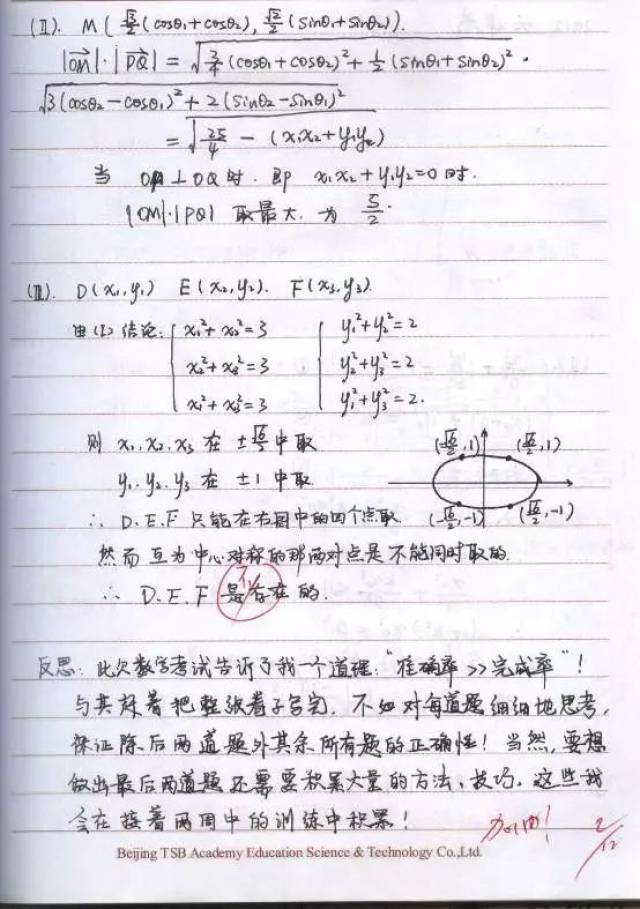 (Ⅱ). M ( √6/2 (cosθ₁+cosθ₂), √2/2 (sinθ₁+sinθ₂) ).
|OM|·|PQ| = √(3/4 (cosθ₁+cosθ₂)² + 1/2 (sinθ₁+sinθ₂)²) ·
√(3(cosθ₂-cosθ₁)² + 2(sinθ₂-sinθ₁)²)
= √(25/4 - (x₁x₂+y₁y₂))
当 OP⊥OQ 时. 即 x₁x₂+y₁y₂=0 时.
|OM|·|PQ| 取最大. 为 5/2.
(Ⅲ). D(x₁,y₁) E(x₂,y₂). F(x₃,y₃).
由(Ⅰ)结论: { x₁²+x₂²=3 { y₁²+y₂²=2
x₂²+x₃²=3 y₂²+y₃²=2
x₁²+x₃²=3 y₁²+y₃²=2.
则 x₁.x₂.x₃ 在 ±√6/2 中取
y₁.y₂.y₃ 在 ±1 中取.
(√6/2,1) (√6/2,1)
(-√6/2,-1) (√6/2,-1)
∴ D.E.F 只能在右图中的四个点取
然而互为中心对称的那两对点是不能同时取的.
∴ D.E.F 是存在的.
不
反思: 此次数学考试告诉了我一个道理: "准确率>>完成率"!
与其赶着把整张卷子写完, 不如对每道题细细地思考,
保证除后两道题外其余所有题的正确性! 当然, 要想
做出最后两道题还需要积累大量的方法、技巧, 这些我
会在接着两周中的训练中积累!
加油!
2/12
Beijing TSB Academy Education Science & Technology Co.,Ltd.